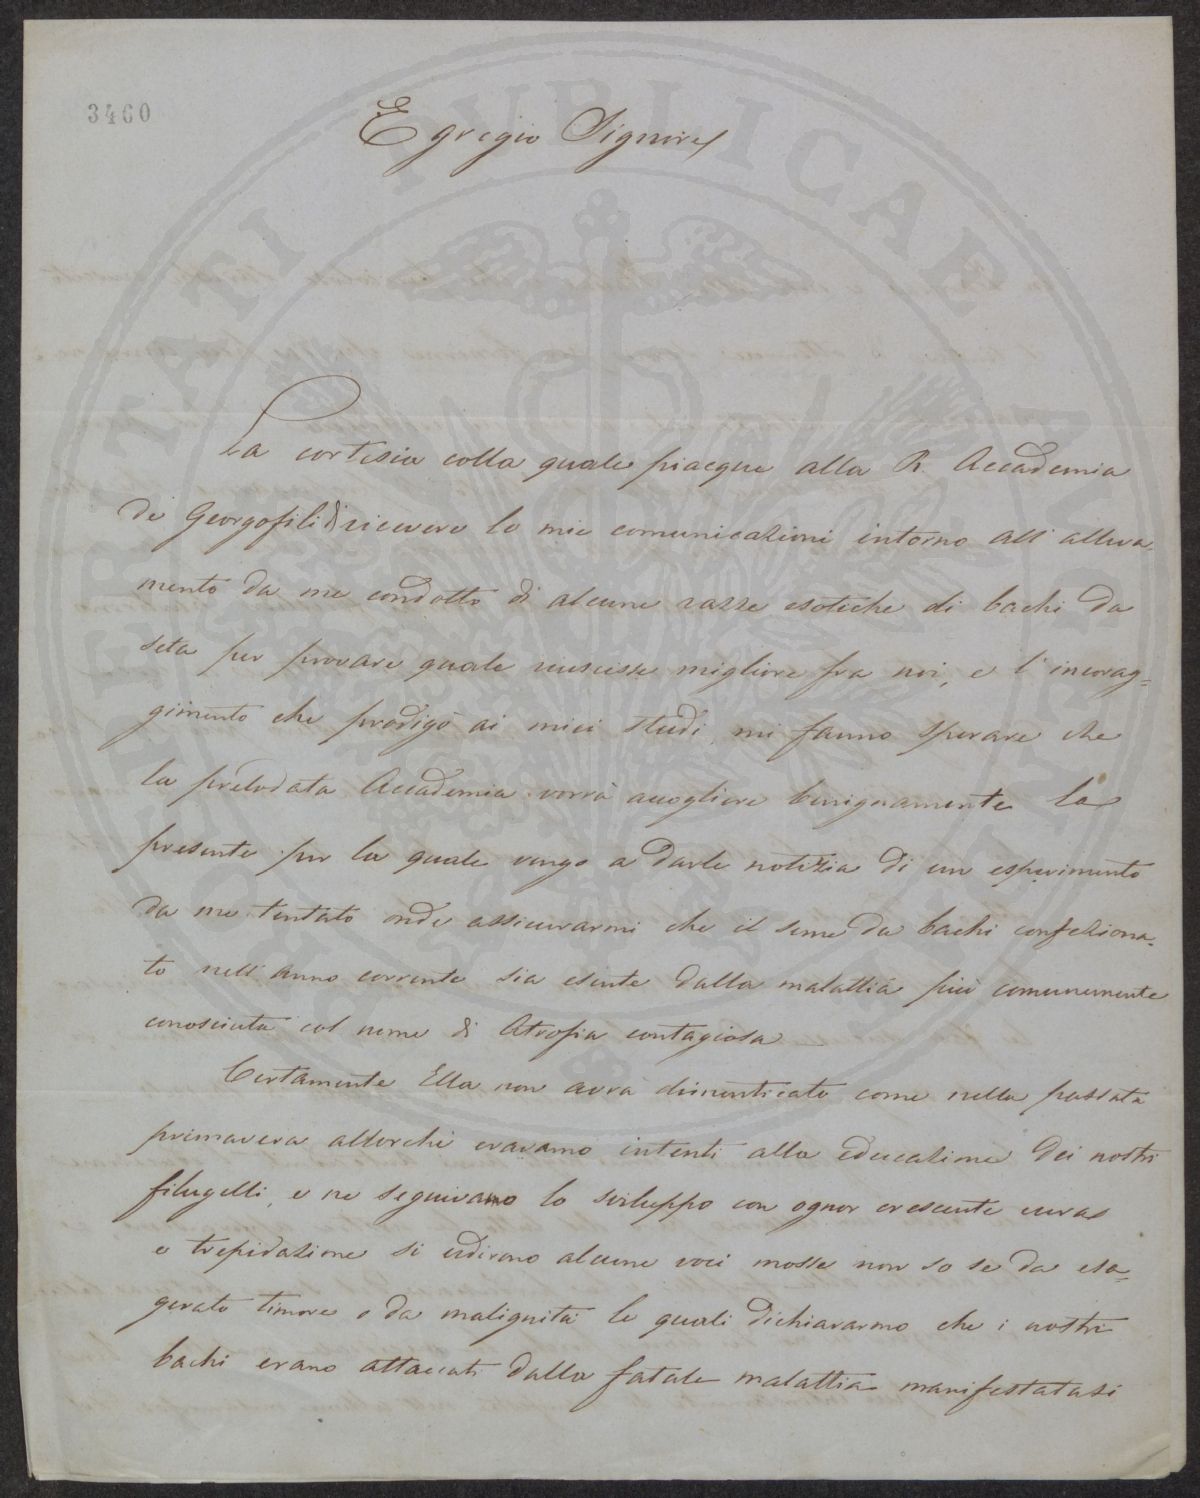 3460
Egregio Signore
La cortesia colla quale piacque alla R. Accademia
de' Georgofili di ricevere le mie comunicazioni intorno all' alleva-
mento da me condotto di alcune razze esotiche di bachi da
seta per provare quale riuscisse migliore fra noi, e l' incorag=
gimento che prodigò ai miei studi, mi fanno sperare che
la prelodata Accademia vorrà accogliere benignamente la
presente per la quale vengo a darle notizia di un esperimento
da me tentato onde assicurarmi che il seme da bachi confeziona-
to nell' anno corrente sia esente dalla malattia più comunemente
conosciuta col nome di Atrofia contagiosa
Certamente Ella non avrà dimenticato come nella passata
primavera allorchè eravamo intenti alla educazione dei nostri
filugelli, e ne seguivamo lo sviluppo con ognor crescente cura
e trepidazione si udirono alcune voci mosse non so se da esa=
gerato timore o da malignità le quali dichiararono che i nostri
bachi erano attaccati dalla fatale malattia manifestatasi